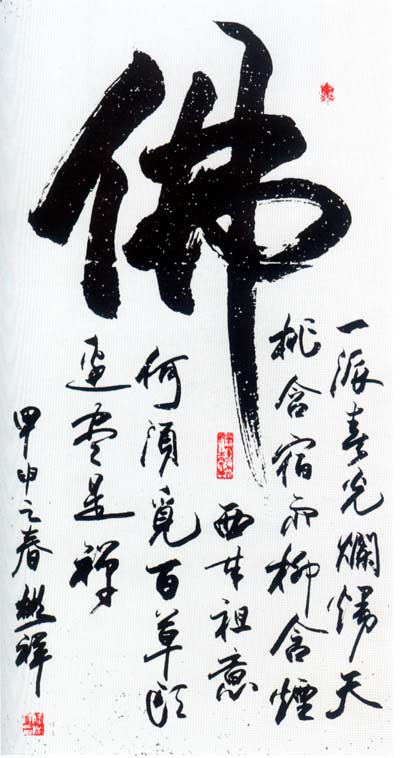 佛
一派春光爛熳天
桃含宿雨柳含煙
西来祖意
何須覓百草頭
邊盡是禪
甲申之春